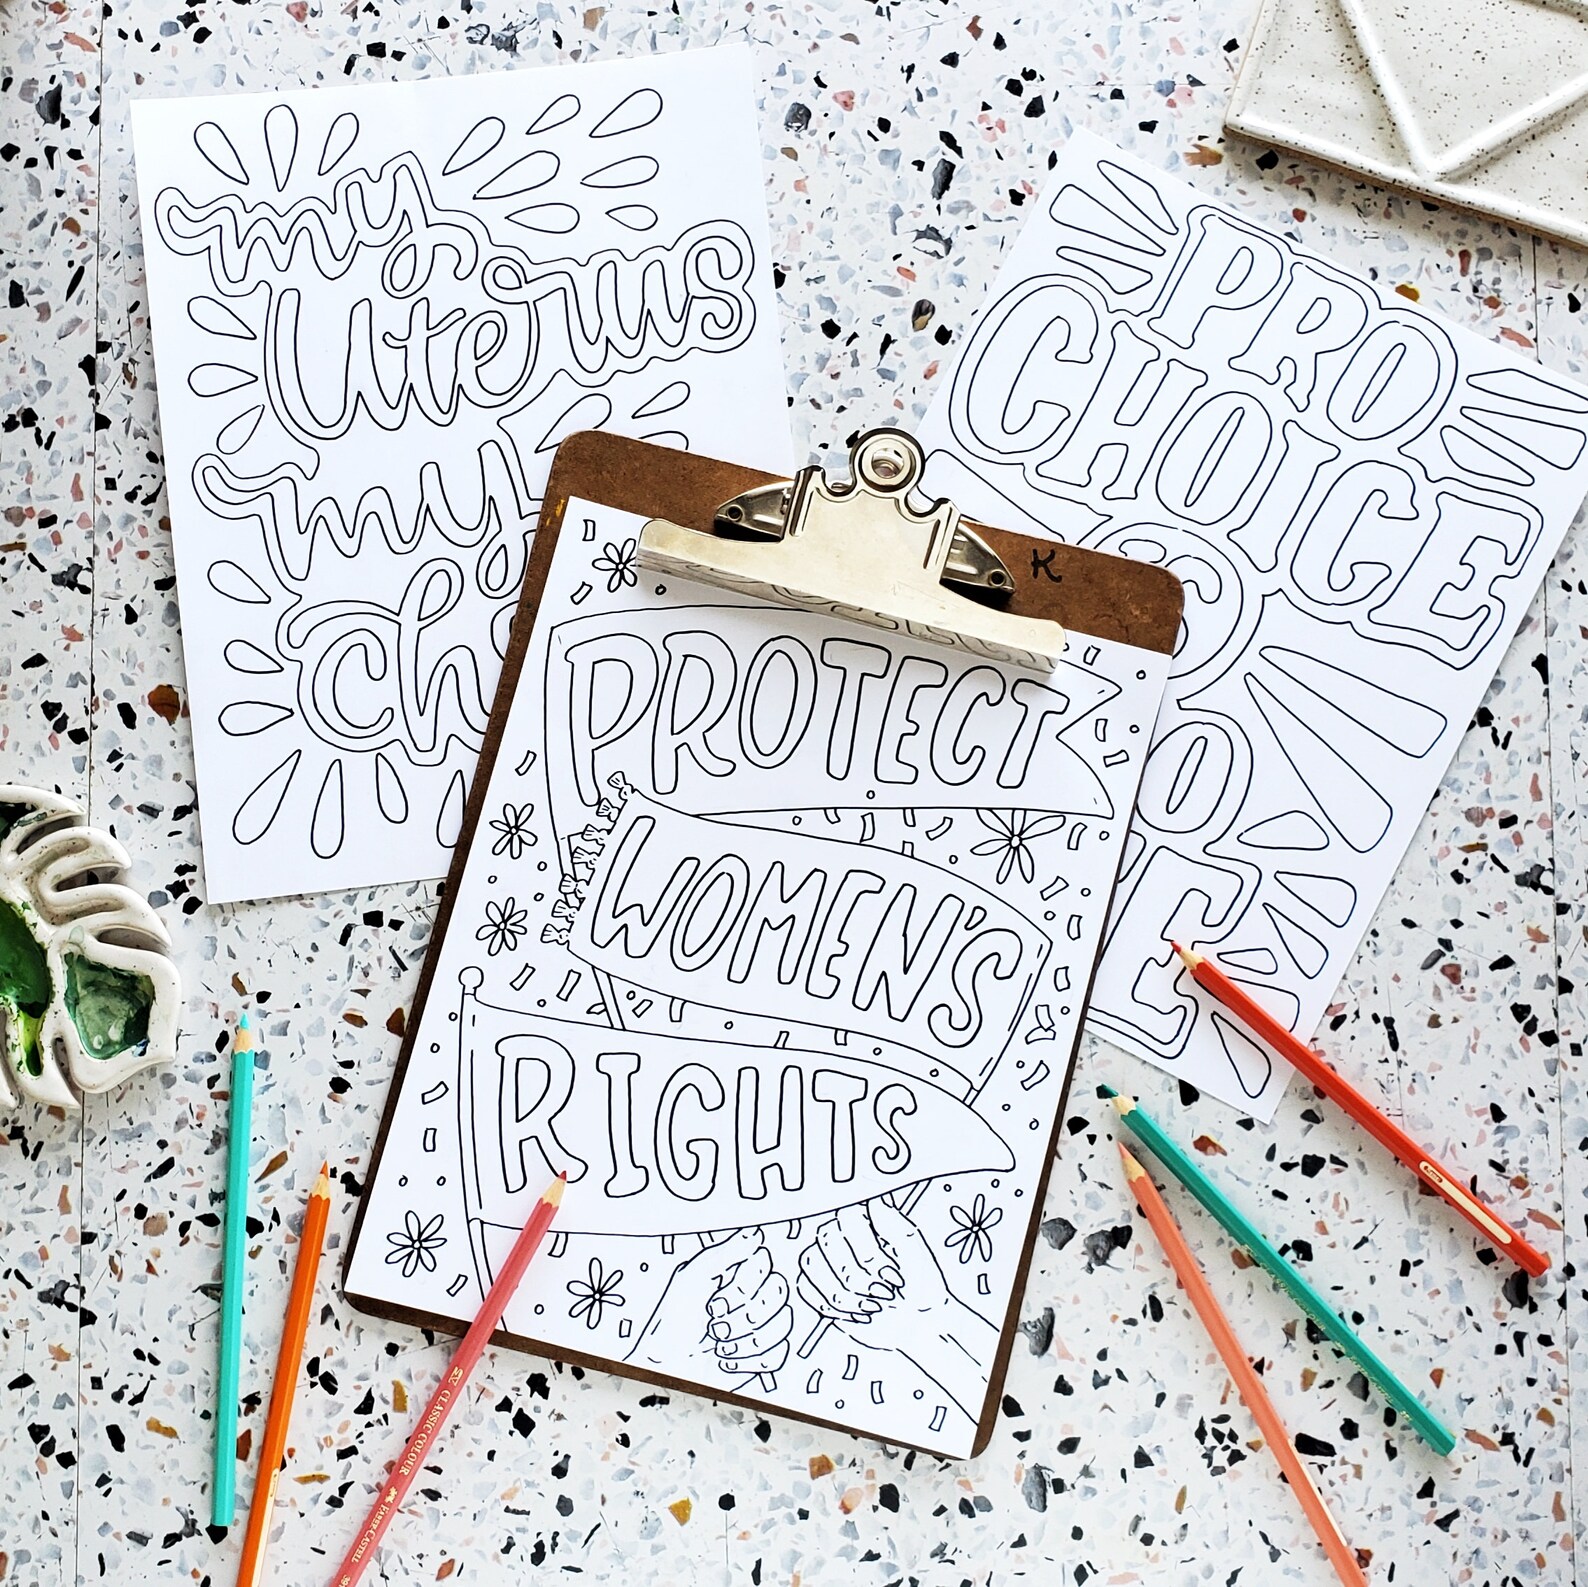 my
uterus
my
ch
PRO
CHOICE
K
PROTECT
WOMEN'S
RIGHTS
CLASSIC COLOUR FABER-CASTELL